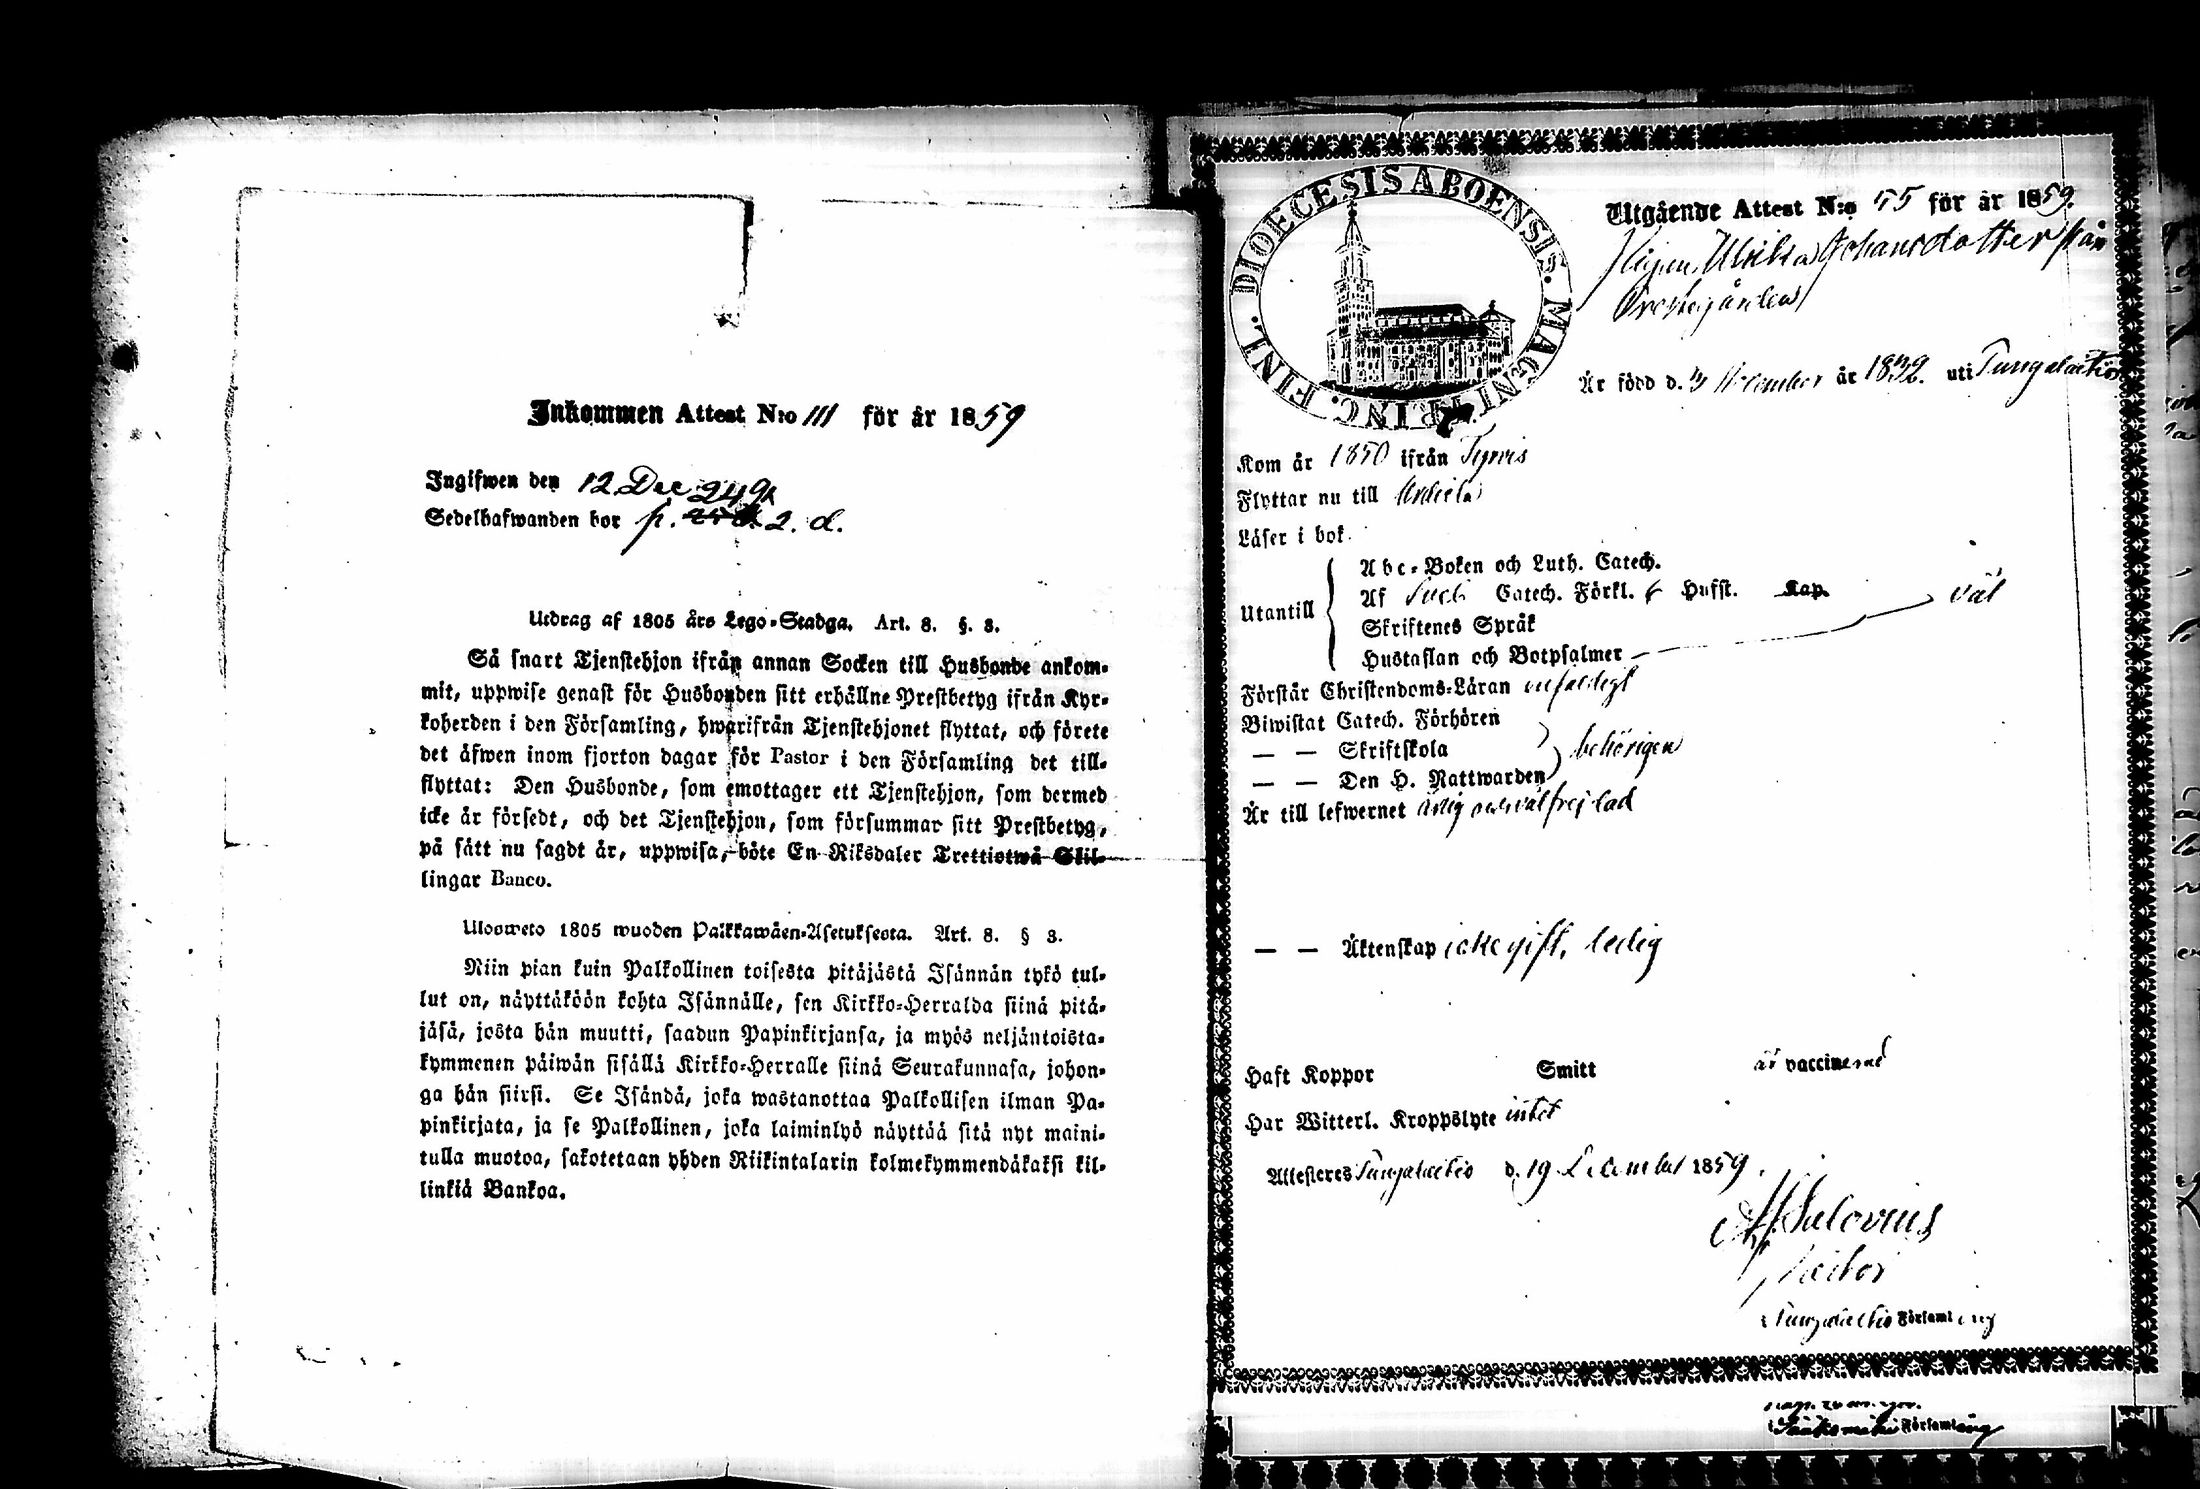 Inkommen Attest N:o 111 för år 1859
Ingifwen den 12 Dec
249
Sedelhafwanden bor p. 2. d.
Utdrag af 1805 års Lego-Stadga. Art. 8. §. 3.
Så snart Tjenstehjon ifrån annan Socken till Husbonde ankom-
mit, uppwise genast för Husbonden sitt erhållne Prestbetyg ifrån Kyr-
koherden i den Församling, hwarifrån Tjenstehjonet flyttat, och förete
det äfwen inom fjorton dagar för Pastor i den Församling det till-
flyttat: Den Husbonde, som emottager ett Tjenstehjon, som dermed
icke är försedt, och det Tjenstehjon, som försummar sitt Prestbetyg,
på sätt nu sagdt är, uppwisa, böte En Riksdaler Trettiotwå Skil-
lingar Banco.
Ulosweto 1805 wuoden Palkkawäen-Asetuksesta. Art. 8. § 3.
Niin pian kuin Palkollinen toisesta pitäjästä Isännän tykö tul-
lut on, näyttäköön kohta Isännälle, sen Kirkko-Herralda siinä pitä-
jäsä, josta hän muutti, saadun Papinkirjansa, ja myös neljäntoista-
kymmenen päiwän sisällä Kirkko-Herralle siinä Seurakunnasa, johon-
ga hän siirsi. Se Isändä, joka wastanottaa Palkollisen ilman Pa-
pinkirjata, ja se Palkollinen, joka laiminlyö näyttää sitä nyt maini-
tulla muotoa, sakotetaan yhden Riikintalarin kolmekymmendäkaksi kil-
linkiä Bankoa.
DIOECESIS ABOENSIS. MAGNI PRINC. FINL.
Utgående Attest N:o 55 för år 1859.
Pigan Ulrika Johansdotter från
Prestegården
Är född d. November år 1832. uti Tungelaetio
Kom år 1850 ifrån Tyrvis
Flyttar nu till
Läser i bok
Utantill
Abc-Boken och Luth. Catech.
Af Sveb Catech. Förkl. 6 Hufst. Kap.
Skriftenes Språk
Hustaflan och Botpsalmer
väl
Förstår Christendoms-Läran enfaldigt
Biwistat Catech. Förhören
— — Skriftskola
— — Den H. Nattwarden
behörigen
Är till lefwernet ärlig och välfrejdad
— — Äktenskap icke gift, ledig
Haft Koppor Smitt är vaccinerad
Har Witterl. Kroppslyte intet
Attesteres Tungelaetio d. 19 December 1859.
Pastor
i Tungelaetio Församling
i Sääksmäki Församling